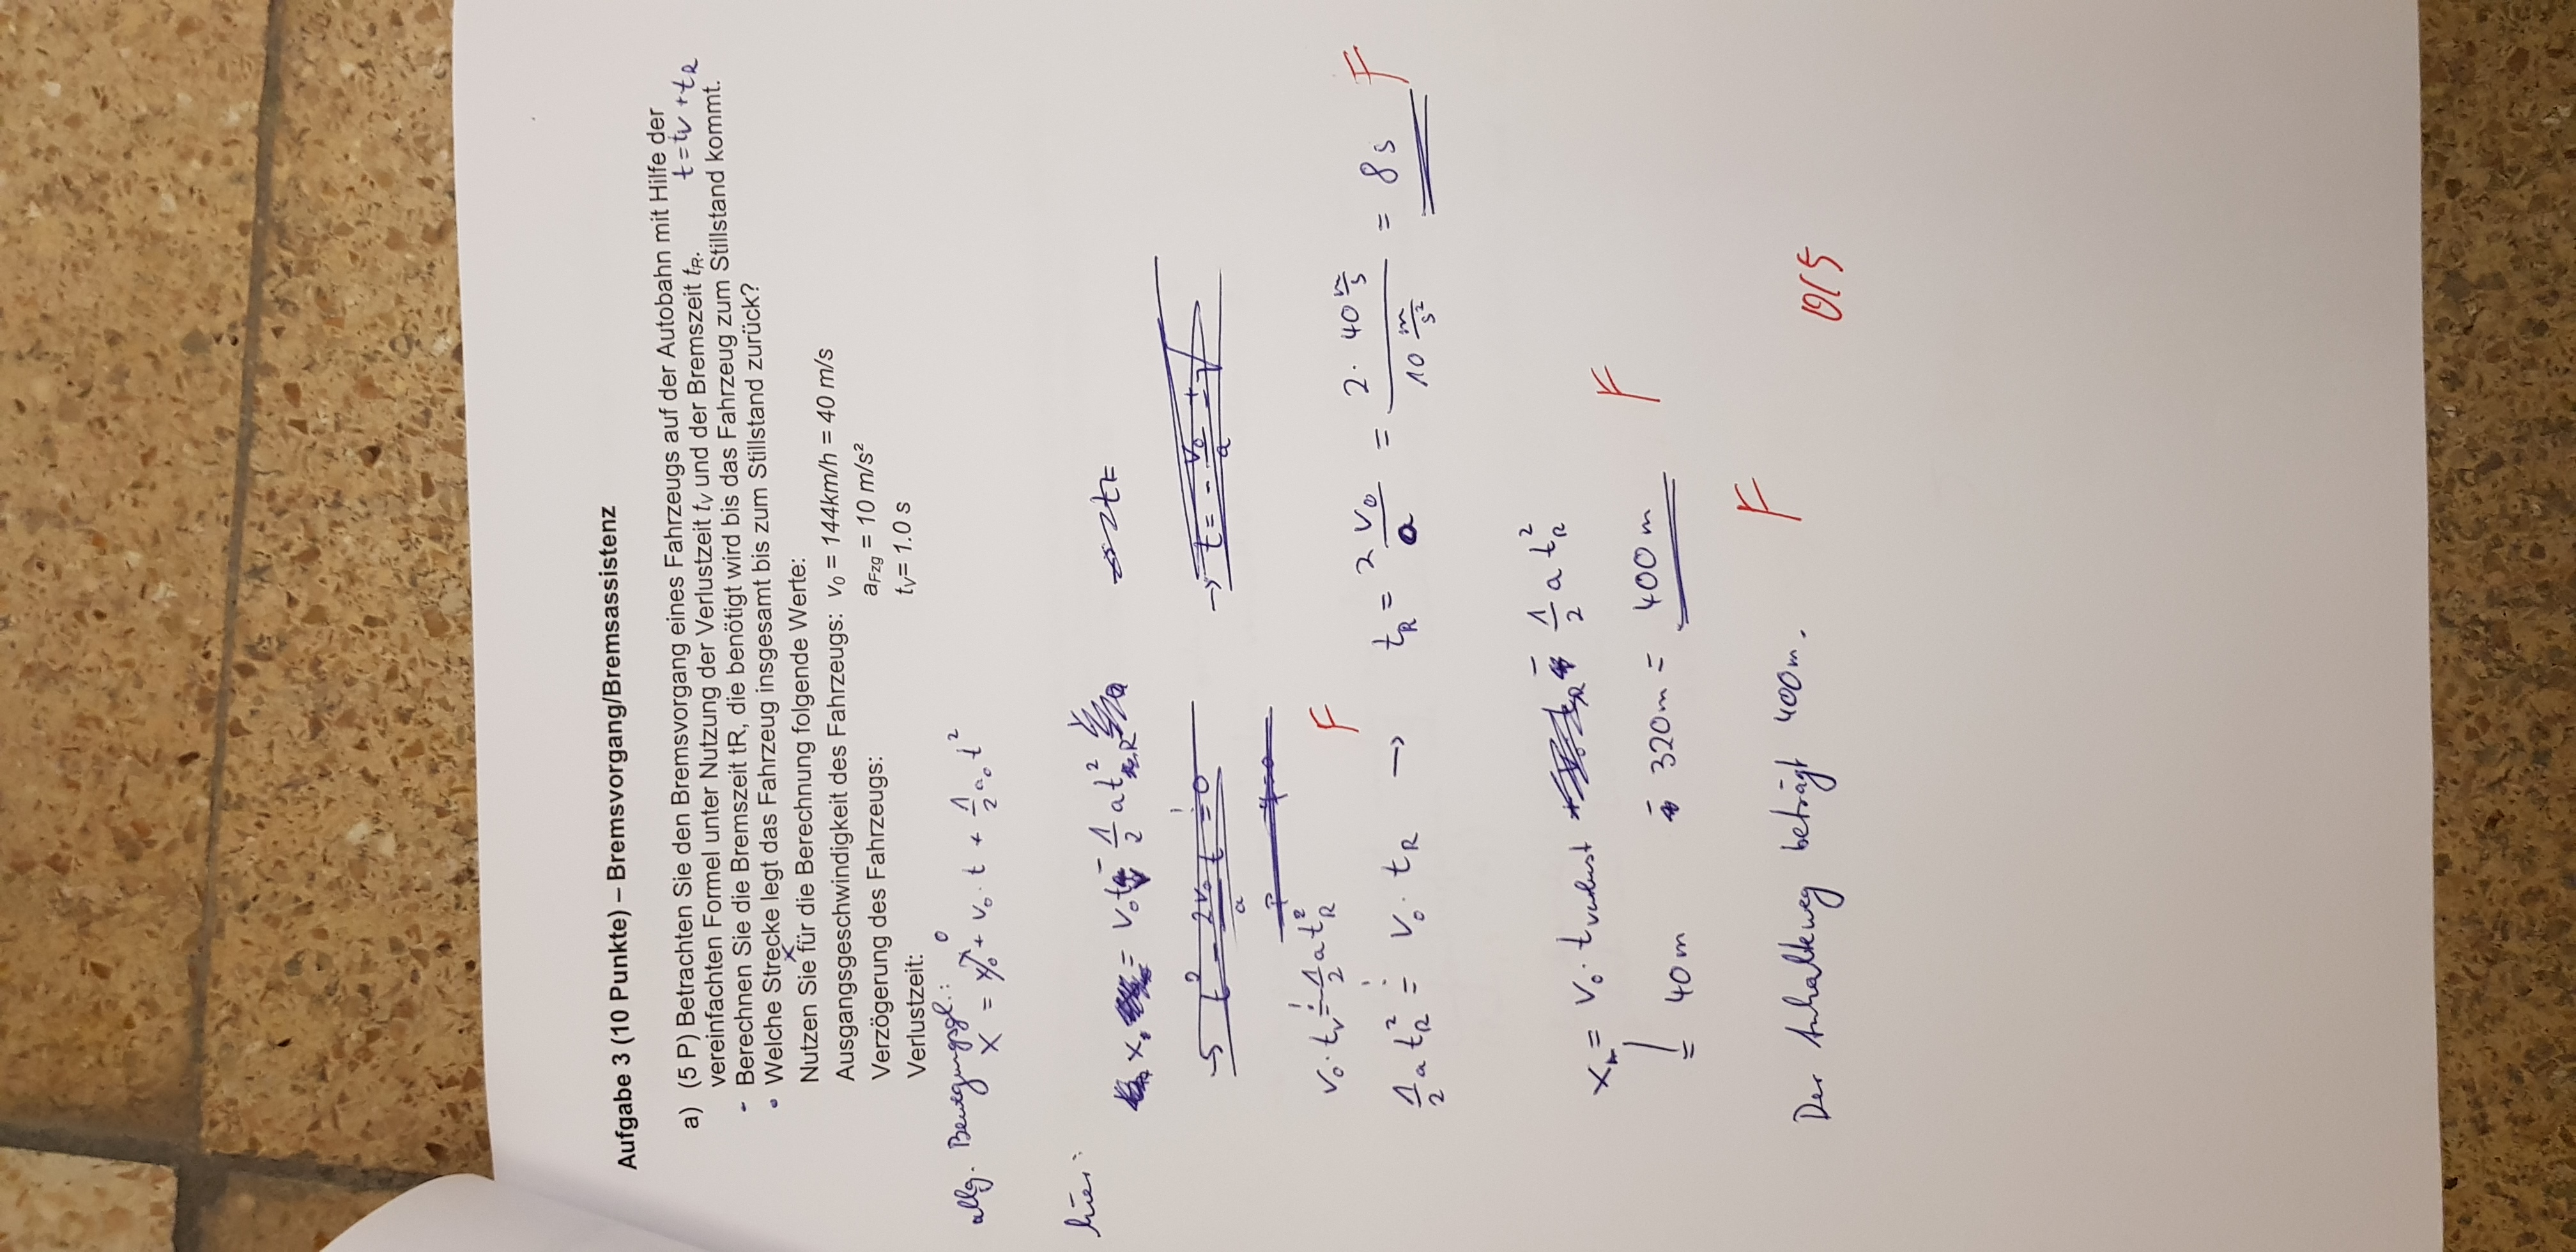 Aufgabe 3 (10 Punkte) – Bremsvorgang/Bremsassistenz
a) (5 P) Betrachten Sie den Bremsvorgang eines Fahrzeugs auf der Autobahn mit Hilfe der
vereinfachten Formel unter Nutzung der Verlustzeit tV und der Bremszeit tR. t = tV + tR
- Berechnen Sie die Bremszeit tR, die benötigt wird bis das Fahrzeug zum Stillstand kommt.
• Welche Strecke legt das Fahrzeug insgesamt bis zum Stillstand zurück?
x
Nutzen Sie für die Berechnung folgende Werte:
Ausgangsgeschwindigkeit des Fahrzeugs: v0 = 144km/h = 40 m/s
Verzögerung des Fahrzeugs: aFzg = 10 m/s²
Verlustzeit: tV= 1.0 s
allg. Bewegungsgl.: 0
x = x0 + v0 · t + 1/2 a0 t²
hier:
x = v0 t - 1/2 a t²R
→ t² - 2v0/a t = 0 → t = - v0/a ± √
v0 · tv = 1/2 a t²R F
1/2 a t²R = v0 · tR → tR = 2 v0/a = 2 · 40 m/s / 10 m/s² = 8s F
x = v0 · tverlust - 1/2 a t²R
= 40m - 320m = 400m F
Der Anhalteweg beträgt 400m. F
0/5